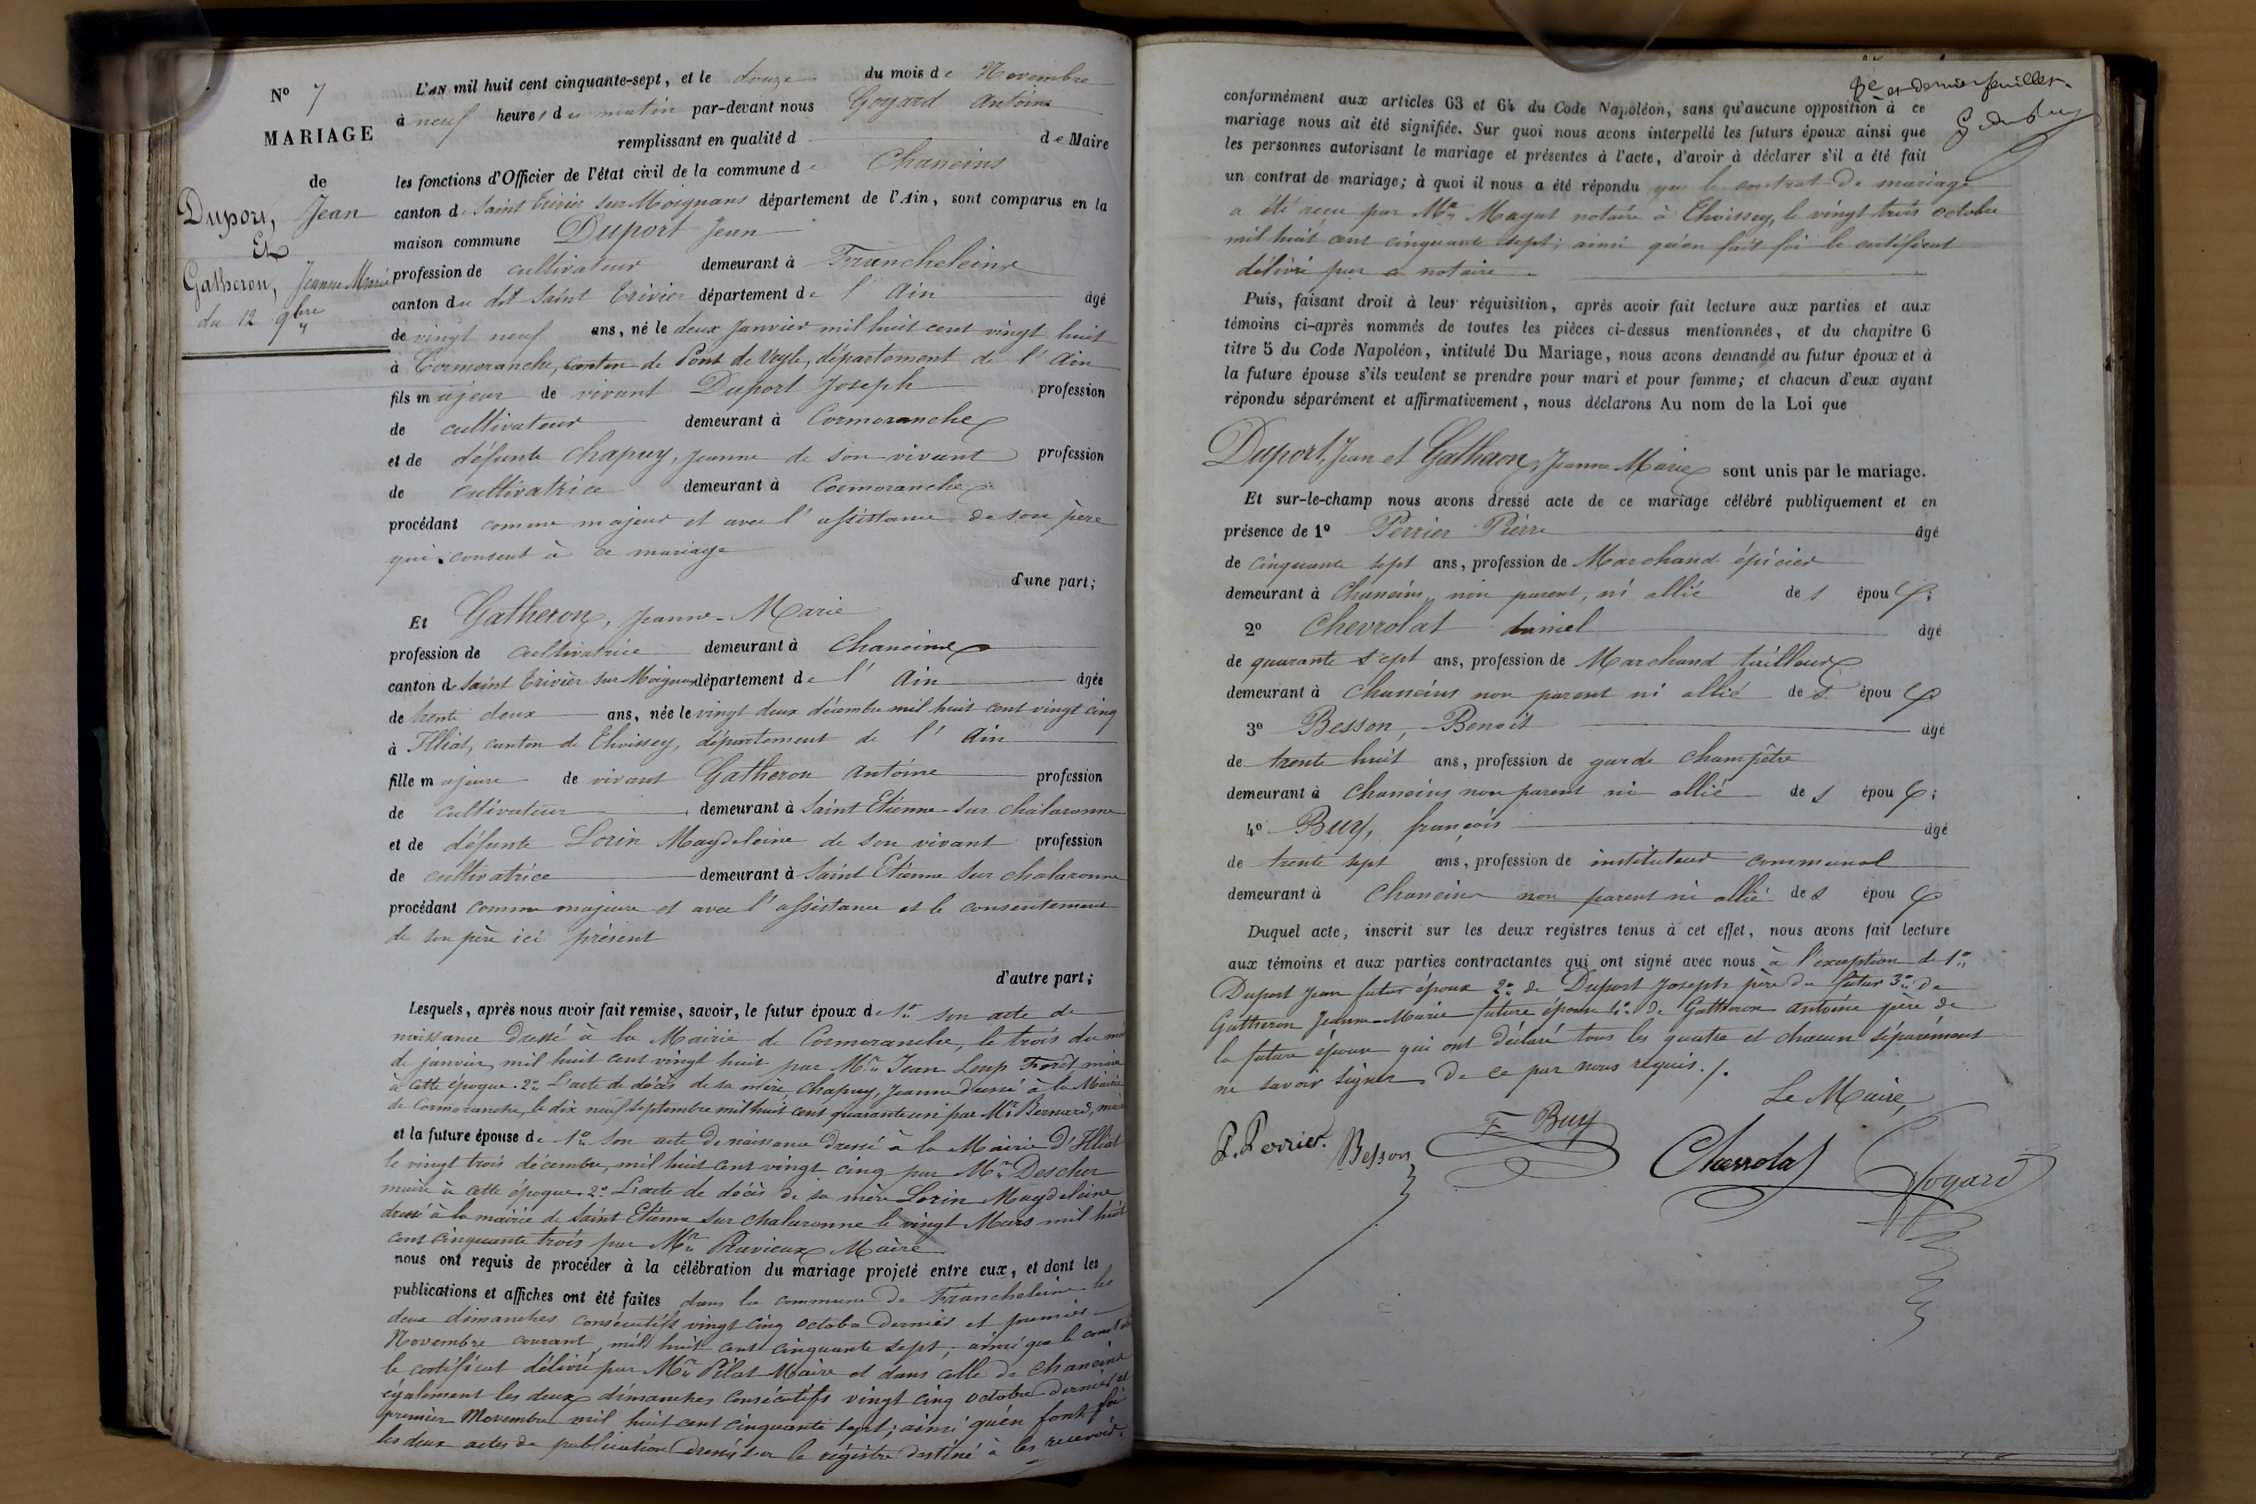 N° 7
MARIAGE
de
Duport, Jean
Et
Gatheron, Jeanne Marie
du 12 9bre
L'AN mil huit cent cinquante-sept, et le douze du mois de Novembre
à neuf heures du matin par-devant nous Goyard Antoine
remplissant en qualité d de Maire
les fonctions d'Officier de l'état civil de la commune de Chaneins
canton de Saint Trivier sur Moignans département de l'Ain, sont comparus en la
maison commune Duport Jean
profession de cultivateur demeurant à Francheleins
canton du dit Saint Trivier département de l'Ain âgé
de vingt neuf ans, né le deux Janvier mil huit cent vingt huit
à Cormoranche, canton de Pont de Veyle, département de l'Ain
fils majeur de vivant Duport Joseph profession
de cultivateur demeurant à Cormoranche
et de défunte Chapuy, Jeanne de son vivant profession
de cultivatrice demeurant à Cormoranche
procédant comme majeur et avec l'assistance de son père
qui consent à ce mariage
d'une part;
Et Gatheron, Jeanne-Marie
profession de cultivatrice demeurant à Chaneins
canton de Saint Trivier sur Moignans département de l'Ain âgée
de trente deux ans, née le vingt deux décembre mil huit cent vingt cinq
à Illiat, canton de Thoissey, département de l'Ain
fille majeure de vivant Gatheron Antoine profession
de cultivateur demeurant à Saint Etienne sur Chalaronne
et de défunte Lorin Magdeleine de son vivant profession
de cultivatrice demeurant à Saint Etienne sur chalaronne
procédant comme majeure et avec l'assistance et le consentement
de son père ici présent
d'autre part;
Lesquels, après nous avoir fait remise, savoir, le futur époux de 1° son acte de
naissance dressé à la Mairie de Cormoranche, le trois du mois
de janvier, mil huit cent vingt huit par Mr Jean Loup Forêt maire
à cette époque. 2° L'acte de décès de sa mère, Chapuy, Jeanne dressé à la Mairie
de Cormoranche, le dix neuf septembre mil huit cent quarante un par Mr Bernard, maire
et la future épouse de 1° son acte de naissance dressé à la Mairie d'Illiat
le vingt trois décembre, mil huit cent vingt cinq par Mr Descher
maire à cette époque. 2° L'acte de décès de sa mère Lorin Magdeleine
dressé à la mairie de Saint Etienne sur chalaronne le vingt Mars mil huit
cent cinquante trois par Mr Ravieux Maire
nous ont requis de procéder à la célébration du mariage projeté entre eux, et dont les
publications et affiches ont été faites dans la commune de Francheleins les
deux dimanches consécutifs vingt cinq octobre dernier et premier
Novembre courant, mil huit cent cinquante sept, ainsi que le constate
le certificat délivré par Mr Pilat Maire et dans celle de Chaneins
également les deux dimanches consécutifs vingt cinq octobre dernier et
premier Novembre mil huit cent cinquante sept; ainsi qu'en font foi
les deux actes de publication dressés sur le régistre destiné à les recevoir.
8e et dernier feuillet.
conformément aux articles 63 et 64 du Code Napoléon, sans qu'aucune opposition à ce
mariage nous ait été signifiée. Sur quoi nous avons interpellé les futurs époux ainsi que
les personnes autorisant le mariage et présentes à l'acte, d'avoir à déclarer s'il a été fait
un contrat de mariage; à quoi il nous a été répondu que le contrat de mariage
a été reçu par Me Magat notaire à Thoissey, le vingt trois octobre
mil huit cent cinquante sept; ainsi qu'en fait foi le certificat
délivré par ce notaire
Puis, faisant droit à leur réquisition, après avoir fait lecture aux parties et aux
témoins ci-après nommés de toutes les pièces ci-dessus mentionnées, et du chapitre 6
titre 5 du Code Napoléon, intitulé Du Mariage, nous avons demandé au futur époux et à
la future épouse s'ils veulent se prendre pour mari et pour femme; et chacun d'eux ayant
répondu séparément et affirmativement, nous déclarons Au nom de la Loi que
Duport, Jean et Gatheron, Jeanne Marie sont unis par le mariage.
Et sur-le-champ nous avons dressé acte de ce mariage célébré publiquement et en
présence de 1° Perrier Pierre âgé
de cinquante sept ans, profession de Marchand épicier
demeurant à Chaneins, non parent, ni allié des époux;
2° Chevrolat daniel âgé
de quarante sept ans, profession de Marchand tailleur
demeurant à Chaneins non parent ni allié des époux
3° Besson, Benoît âgé
de trente huit ans, profession de garde champêtre
demeurant à Chaneins non parent ni allié des époux;
4° Buy, françois âgé
de trente sept ans, profession de instituteur communal
demeurant à Chaneins non parent ni allié des époux
Duquel acte, inscrit sur les deux registres tenus à cet effet, nous avons fait lecture
aux témoins et aux parties contractantes qui ont signé avec nous à l'exception de 1°
Duport Jean futur époux 2° de Duport Joseph père du futur 3° de
Gatheron Jeanne-Marie future épouse 4° de Gatheron antoine père de
la future épouse qui ont déclaré tous les quatre et chacun séparément
ne savoir signer de ce par nous requis./.
Le Maire,
P. Perrier. Besson F Buy Chevrolat Goyard